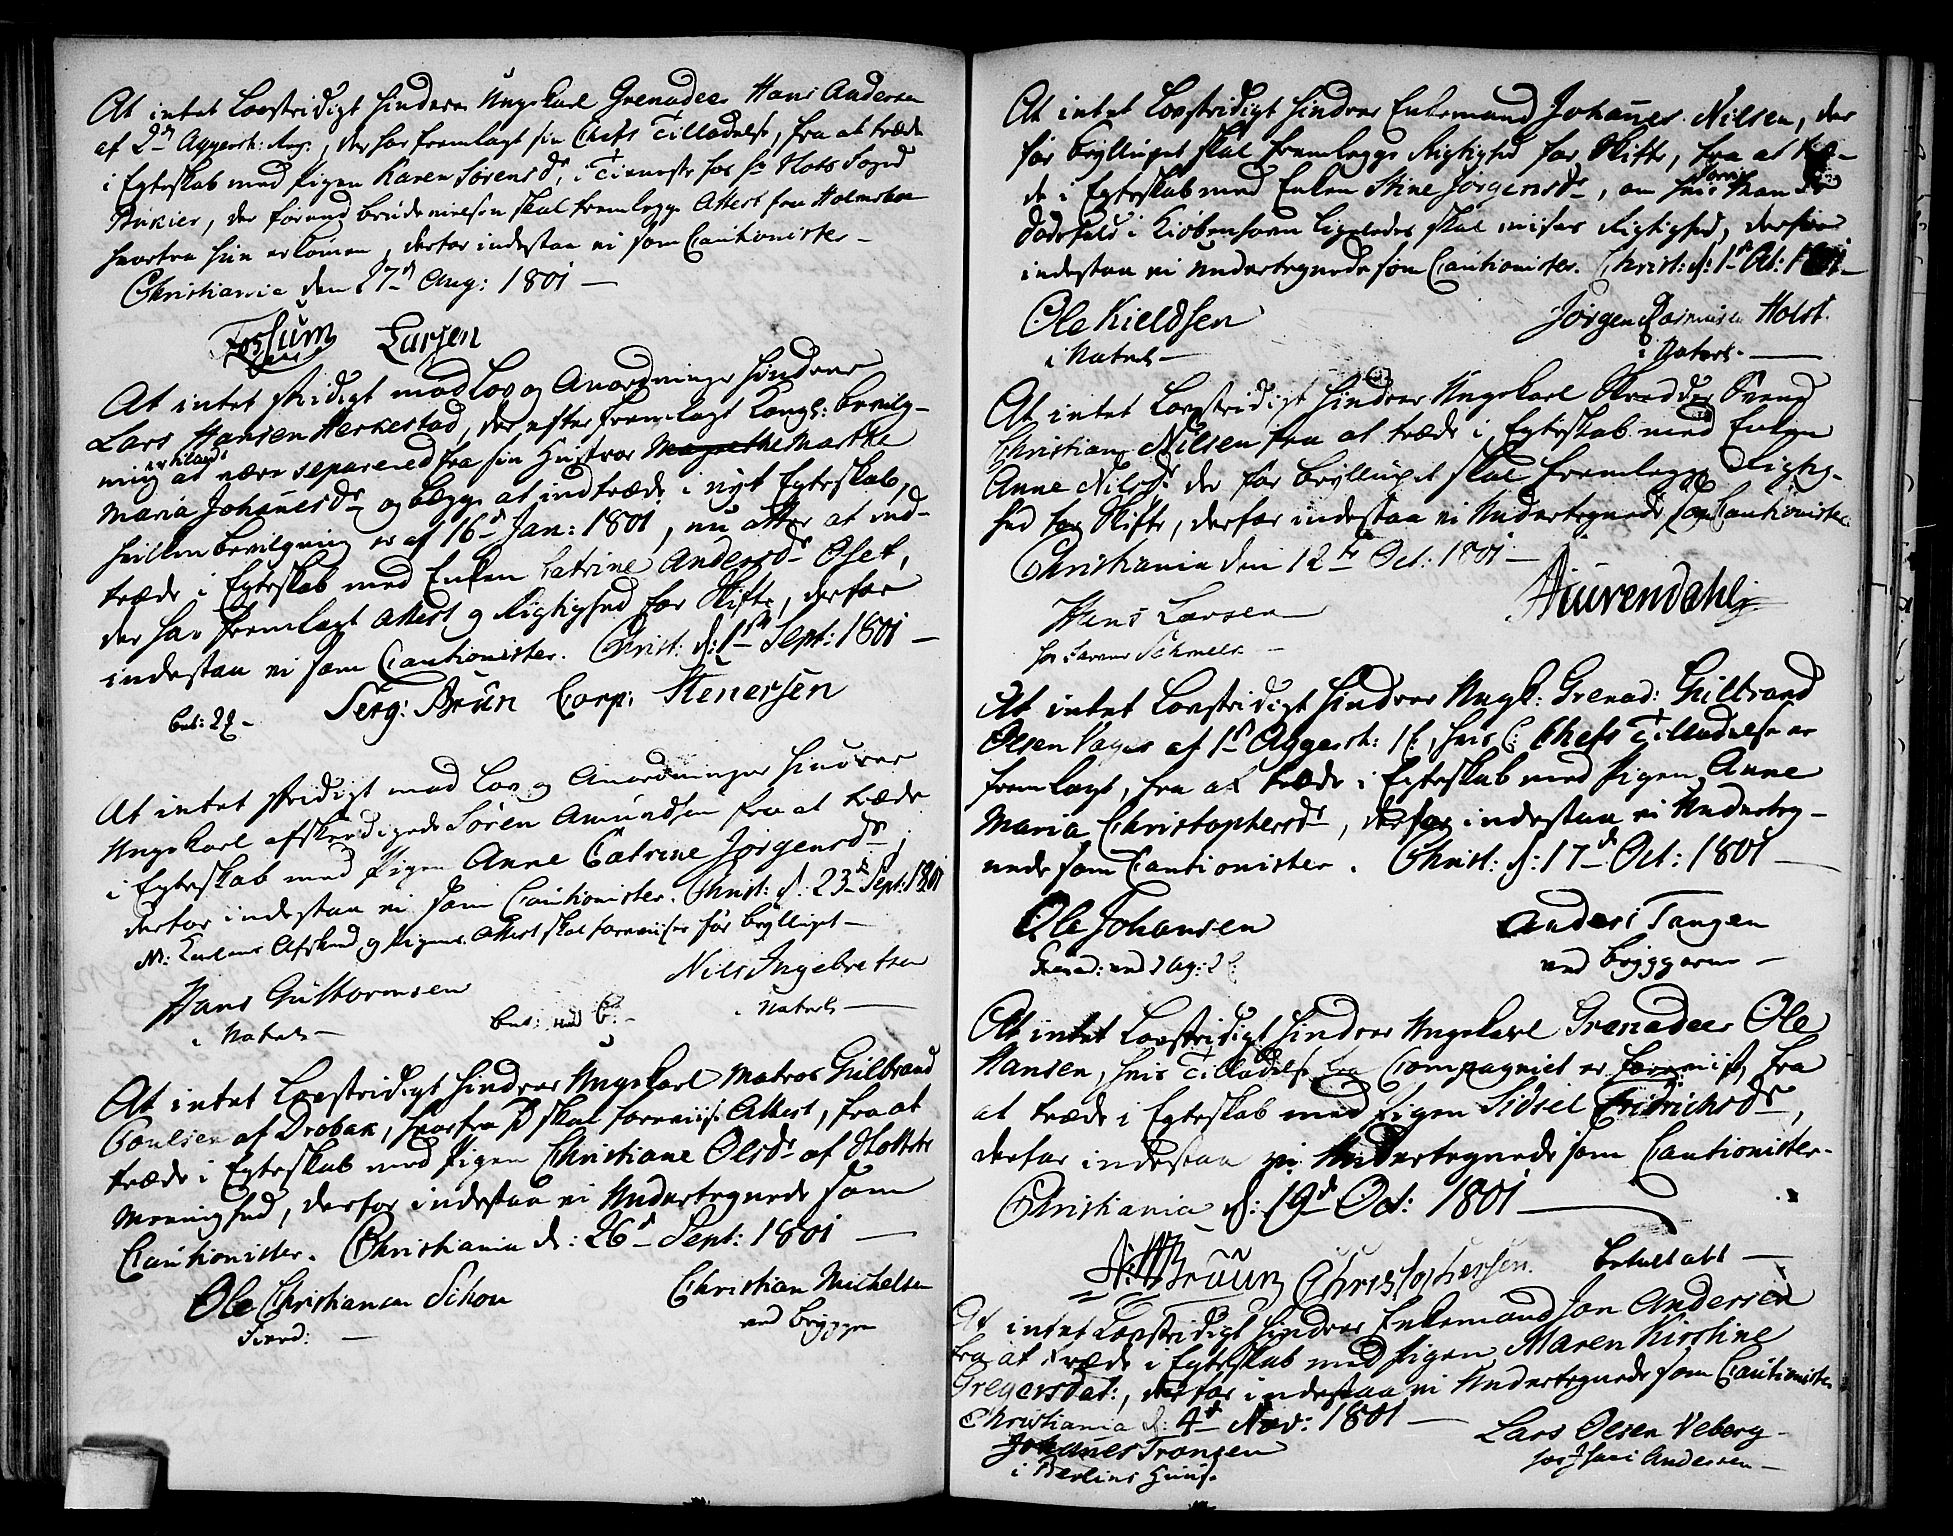 At intet Lovstridigt hindrer Ungekarl Grenadeer Hans Andersen
af 2den Aggersh: Reg:, der har fremlagt sin Chefs Tilladelse, fra at træde
i Egteskab med Pigen Karen Sørensdr, i Tieneste hos Hr Slots Sogne
der forend brudevielsen skal fremlegge Attest fra Holmsboe
hvorfra hun er kommen, derfor indestaa vi som Cautionister –
Christiania den 27d Aug: 1801 –
Fossum Larsen
At intet stridigt mod Lov og Anordninger hindrer
Lars Hansen Herkestad, der efter fremlagt Kongl: bevilg-
ning at være separered fra sin Hustroe Marthe
Maria Johannesdr og begge at indtræde i nyt Egteskab,
hvilken bevilgning er af 16d Jan: 1801, nu atter at ind-
træde i Egteskab med Enken Catrine Andersdr Oset,
der har fremlagt Attest og Rigtighed for Skifte, derfor
indestaa vi som Cautionister. Christ: d: 1ste Sept: 1801 –
Serg: Brun Corp: Stenersen
At intet stridigt mod Lov og Anordninger hindrer
Ungekarl afskeedigede Søren Amundsen fra at træde
i Egteskab med Pigen Anne Catrine Jørgensdr,
derfor indestaa vi som Cautionister. Christ: d: 23d Sept: 1801
NB: Karlens Afskeed og Pigens Attest skal foreviises før brylluped –
Hans Guttormsen Nils Ingebretsen
i Natels – Natels –
At intet Lovstridigt hindrer Ungekarl Matros Gulbrand
Poulsen af Drøbak, hvorfra skal foreviises Attest, fra at
træde i Egteskab med Pigen Christiane Olsdr af
Meenighed, derfor indestaa vi Undertegnede som
Cautionister. Christiania d: 26d Sept: 1801 –
Ole Christiansen Schou Christian Michelsen
ved Bryggen
At intet Lovstridigt hindrer Enkemand Johannes Nilsen, der
før brylluped skal fremlegge Rigtighed for Skifte, fra at træ-
de i Egteskab med Enken Stine Jørgensdr, om hvis Mands
dødsfald i Kiøbenhavn ligeledes skal viises Rigtighed, derfor
indestaa vi Undertegnede som Cautionister. Christ: d: 1d Oct: 1801 –
Ole Kieldsen Jørgen Rasmusen Holst
i Natels – i Natels –
At intet Lovstridigt hindrer Ungekarl Skredder Svend
Christian Nilsen fra at træde i Egteskab med Enken
Anne Nilsdr der før brylluped skal fremlegge Rigtig-
hed for Skifte, derfor indestaa vi Undertegnede som Cautionister
Christiania den 12te Oct: 1801 –
Hans Larsen
At intet Lovstridigt hindrer Ungk: Grenad: Gulbrand
Olsen af 1d Aggersh: hvis Chefs Tilladelse er
fremlagt, fra at træde i Egteskab med Pigen Anne
Maria Christophersdr, derfor indestaa vi Underteg-
nede som Cautionister. Christ: d: 17d Oct: 1801 –
Ole Johansen Anders Tangen
ved Bryggerne –
At intet Lovstridigt hindrer Ungekarl Grenadeer Ole
Hansen, hvis Tilladelse fra Compagniet er foreviist, fra
at træde i Egteskab med Pigen Sidsel Fridrichsdr,
derfor indestaa vi Undertegnede som Cautionister.
Christiania d: 19d Oct: 1801 –
Bruun Christophersen. betalt alt –
At intet Lovstridigt hindrer Enkemand Jon Andersen
fra at træde i Egteskab med Pigen Maren Kirstine
Gregersdat:, derfor indestaa vi Undertegnede som Cautionister
Christiania d: 4d Nov: 1801 –
Johannes Tronsen Lars Olsen Veberg –
i Berlins Huus. hos Andersen –